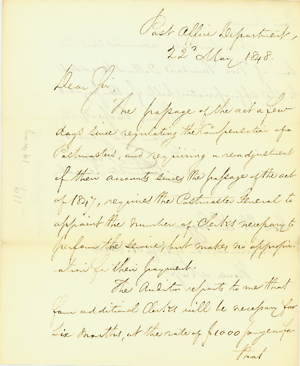 Post Office Department,
22d May 1848.
Dear Sir,
The passage of the act a few
days since regulating the Compensation of
Postmasters, and requiring a readjustment
of their accounts since the passage of the act
of 1847, requires the Postmaster General to
appoint the number of Clerks necessary to
perform the service, but makes no appropri-
ation for their payment.
The Auditor reports to me that
four additional Clerks will be necessary for
six months, at the rate of $1000 a year for
that